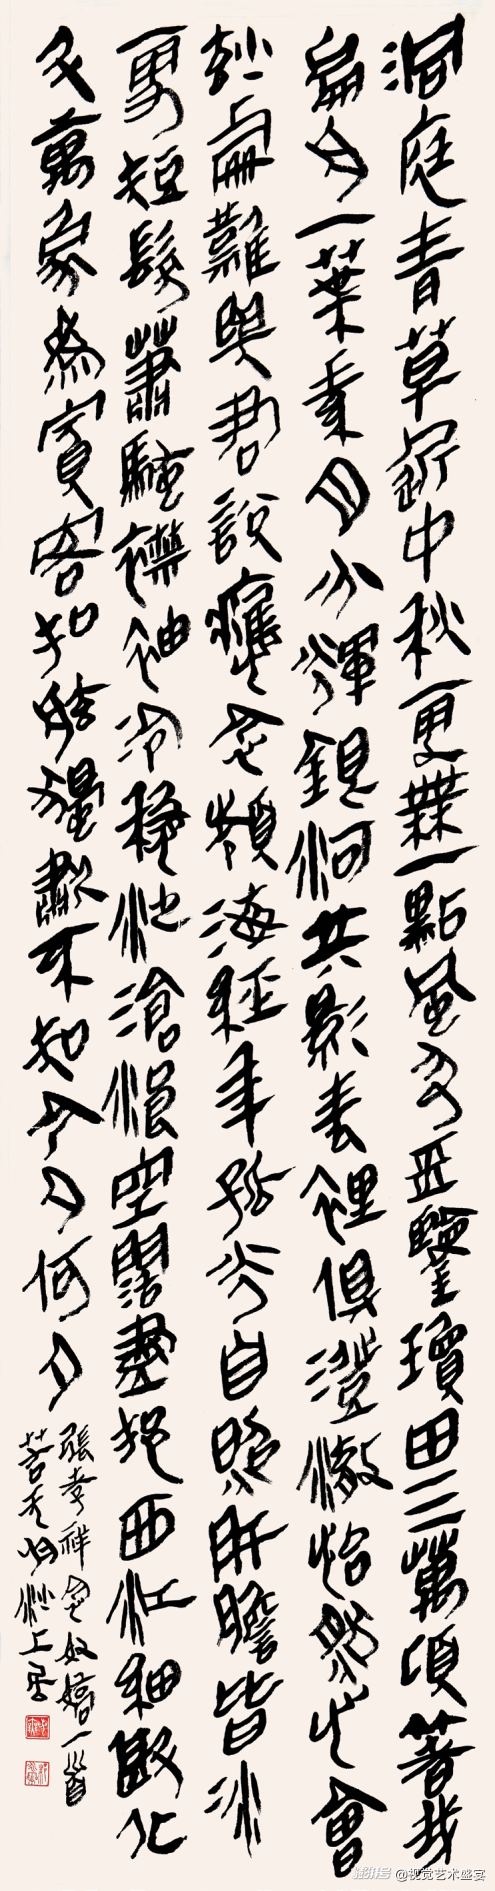 洞庭青草近中秋更無一點風色玉鑒瓊田三萬頃著我
扁舟一葉素月分輝銀河共影表裡俱澄澈怡然心會
妙處難與君說應念嶺海經年孤光自照肝膽皆冰
雪短髮蕭騷襟袖冷穩泛滄浪空闊盡挹西江細斟北
斗萬象為賓客扣舷獨嘯不知今夕何夕
張孝祥念奴嬌一首
上居
澎湃号 @视觉艺术盛宴